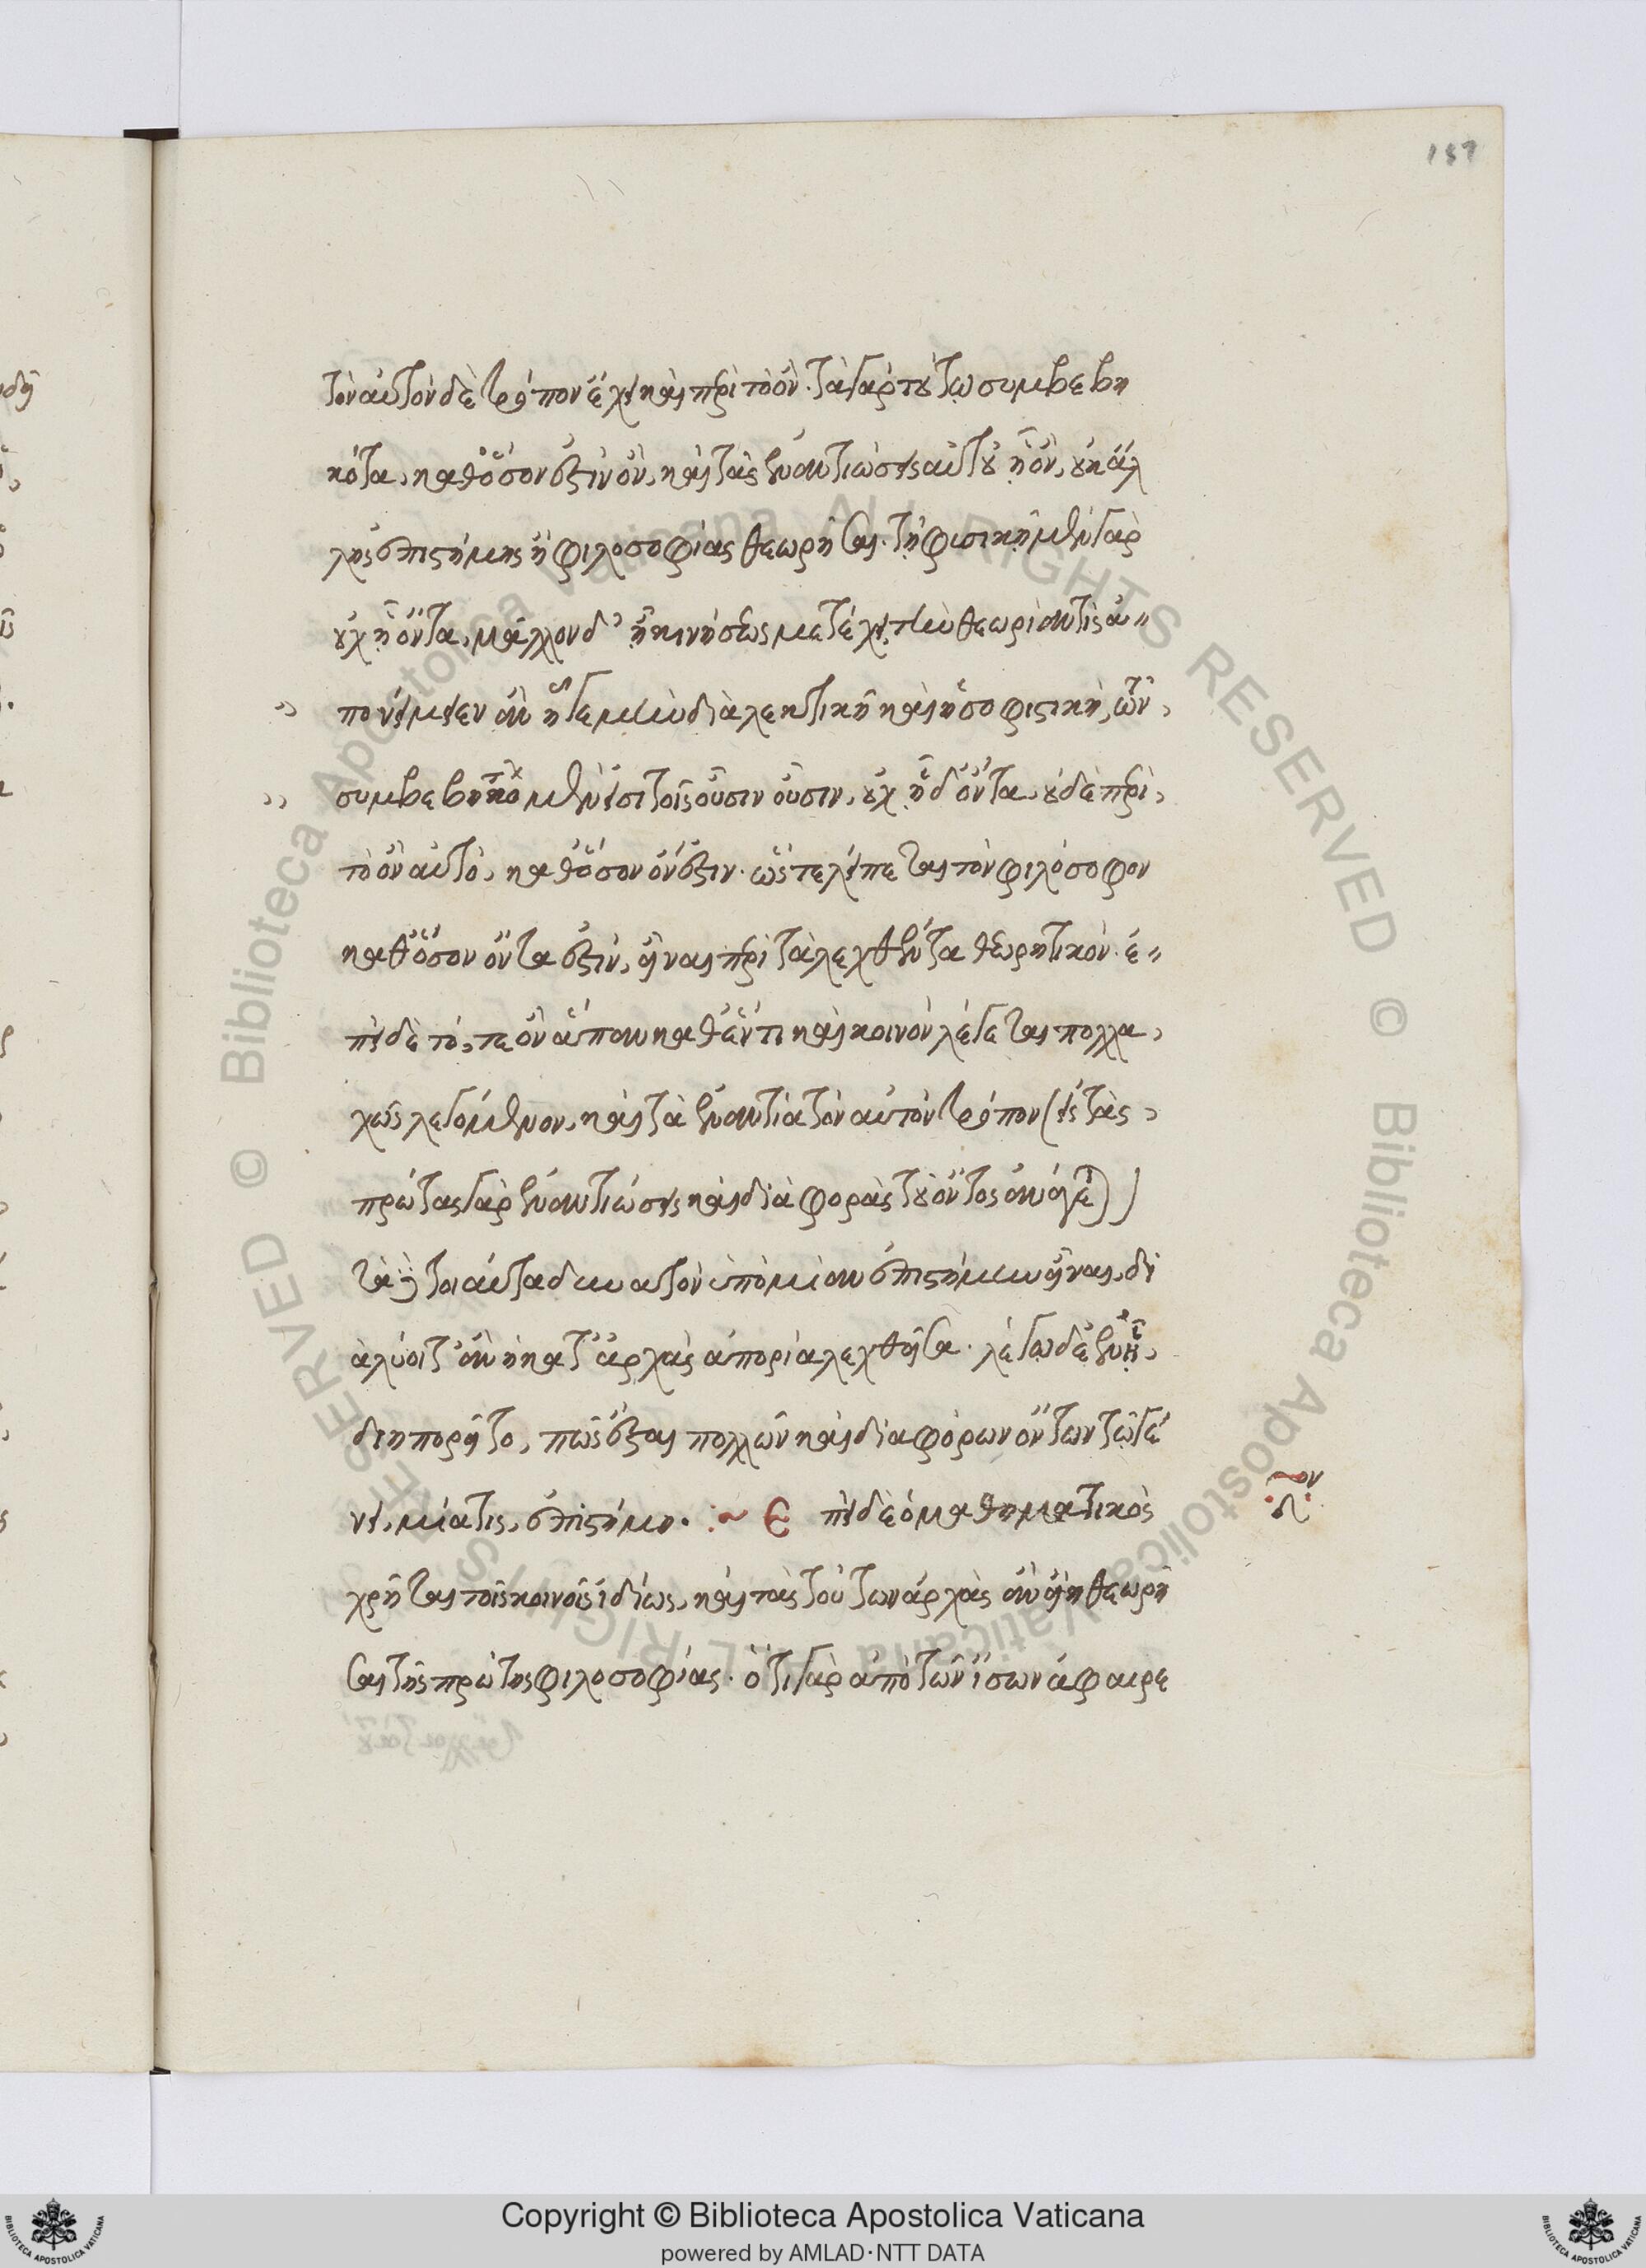 157
τὸν αὐτὸν δὲ τρόπον ἔχει καὶ περὶ τὸ ὄν. τὰ γὰρ τούτῳ συμβεβη
κότα, καθ' ὅσον ἐστὶν ὄν, καὶ τὰς ἐναντιώσεις αὐτοῦ ᾗ ὄν, οὐκ ἄλ
λης ἐπιστήμης ἢ φιλοσοφίας θεωρῆσαι. τῇ φυσικῇ μὲν γὰρ
οὐχ ᾗ ὄντα, μᾶλλον δ' ᾗ κινήσεως μετέχει τὴν θεωρίαν τίς ἀ〃
πονείμειεν ἄν ἥ γε μὴν διαλεκτικὴ καὶ ἡ σοφιστική, τῶν,
συμβεβηκότων μέν εἰσι τοῖς οὖσιν οὖσιν, οὐχ ᾗ δ' ὄντα, οὐδὲ περὶ,
τὸ ὂν αὐτὸ, καθ' ὅσον ὄν ἐστιν. ὥστε λείπεται τὸν φιλόσοφον
καθ' ὅσον ὄντα ἐστίν, εἶναι περὶ τὰ λεχθέντα θεωρητικόν. ἐ〃
πεὶ δὲ τό, τε ὂν ἅπαν καθ' ἕν τι καὶ κοινὸν λέγεται πολλα,
χῶς λεγόμενον, καὶ τὰ ἐναντία τὸν αὐτὸν τρόπον (εἰς τὰς,
πρώτας γὰρ ἐναντιώσεις καὶ διαφορὰς τοῦ ὄντος ἀνάγεται)
τὰ δὲ τοιαῦτα δυνατὸν ὑπὸ μίαν ἐπιστήμην εἶναι, δι
αλύοιτ' ἂν ἡ κατ' ἀρχὰς ἀπορία λεχθεῖσα. λέγω δ' ἐν ᾗ,
διηπορεῖτο, πῶς ἔσται πολλῶν καὶ διαφόρων ὄντων τῷ γέ
νει, μία τις, ἐπιστήμη. :~ Ε πεὶ δὲ ὁ μαθηματικὸς
χρῆται τοῖς κοινοῖς ἰδίως, καὶ τὰς τούτων ἀρχὰς ἂν εἴη θεωρῆ
σαι τῆς πρώτης φιλοσοφίας. ὅτι γὰρ ἀπὸ τῶν ἴσων ἀφαιρε
© Biblioteca Apostolica Vaticana ALL RIGHTS RESERVED
Copyright © Biblioteca Apostolica Vaticana
powered by AMLAD·NTT DATA
BIBLIOTECA APOSTOLICA VATICANA
BIBLIOTECA APOSTOLICA VATICANA